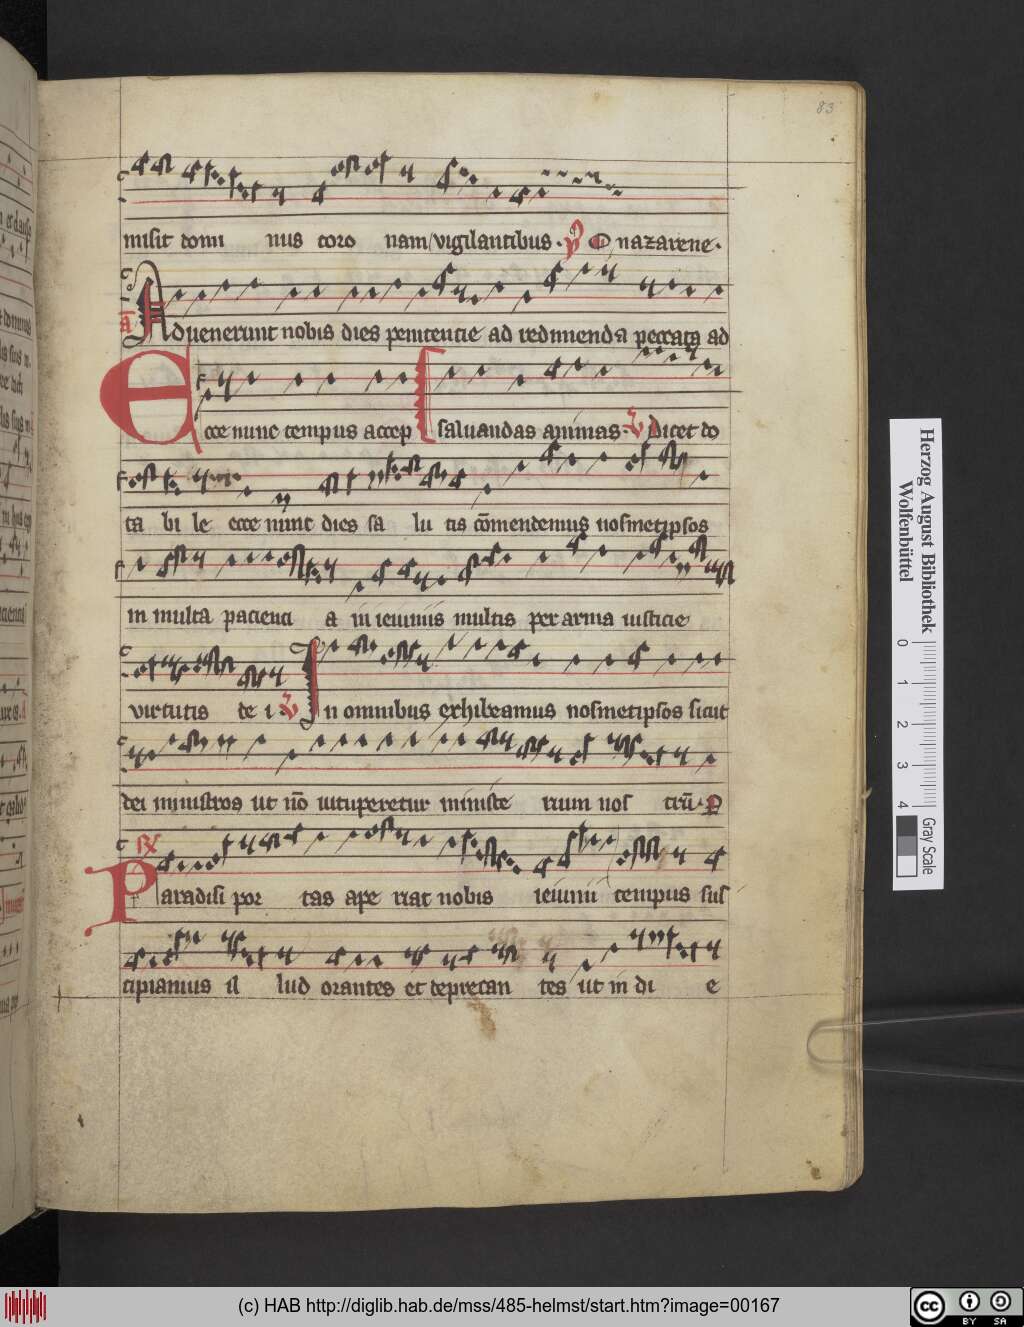 83
misit domi nus coro nam vigilantibus · O nazarene ·
Aduenerunt nobis dies penitencie ad redimenda peccata ad
Ecce nunc tempus accep saluandas animas · dicet do
ta bi le ecce nunc dies sa lu tis cōmendemus nosmetipsos
in multa pacienci a in ieiuniis multis per arma iusticie
virtutis de i · In omnibus exhibeamus nosmetipsos sicut
dei ministros ut nō uituperetur ministe rium nos trū ·
Paradisi por tas ape riat nobis ieiunii tempus sus
cipiamus il lud orantes et deprecan tes ut in di e
Herzog August Bibliothek
Wolfenbüttel
0 1 2 3 4
Gray Scale
(c) HAB http://diglib.hab.de/mss/485-helmst/start.htm?image=00167
cc BY SA